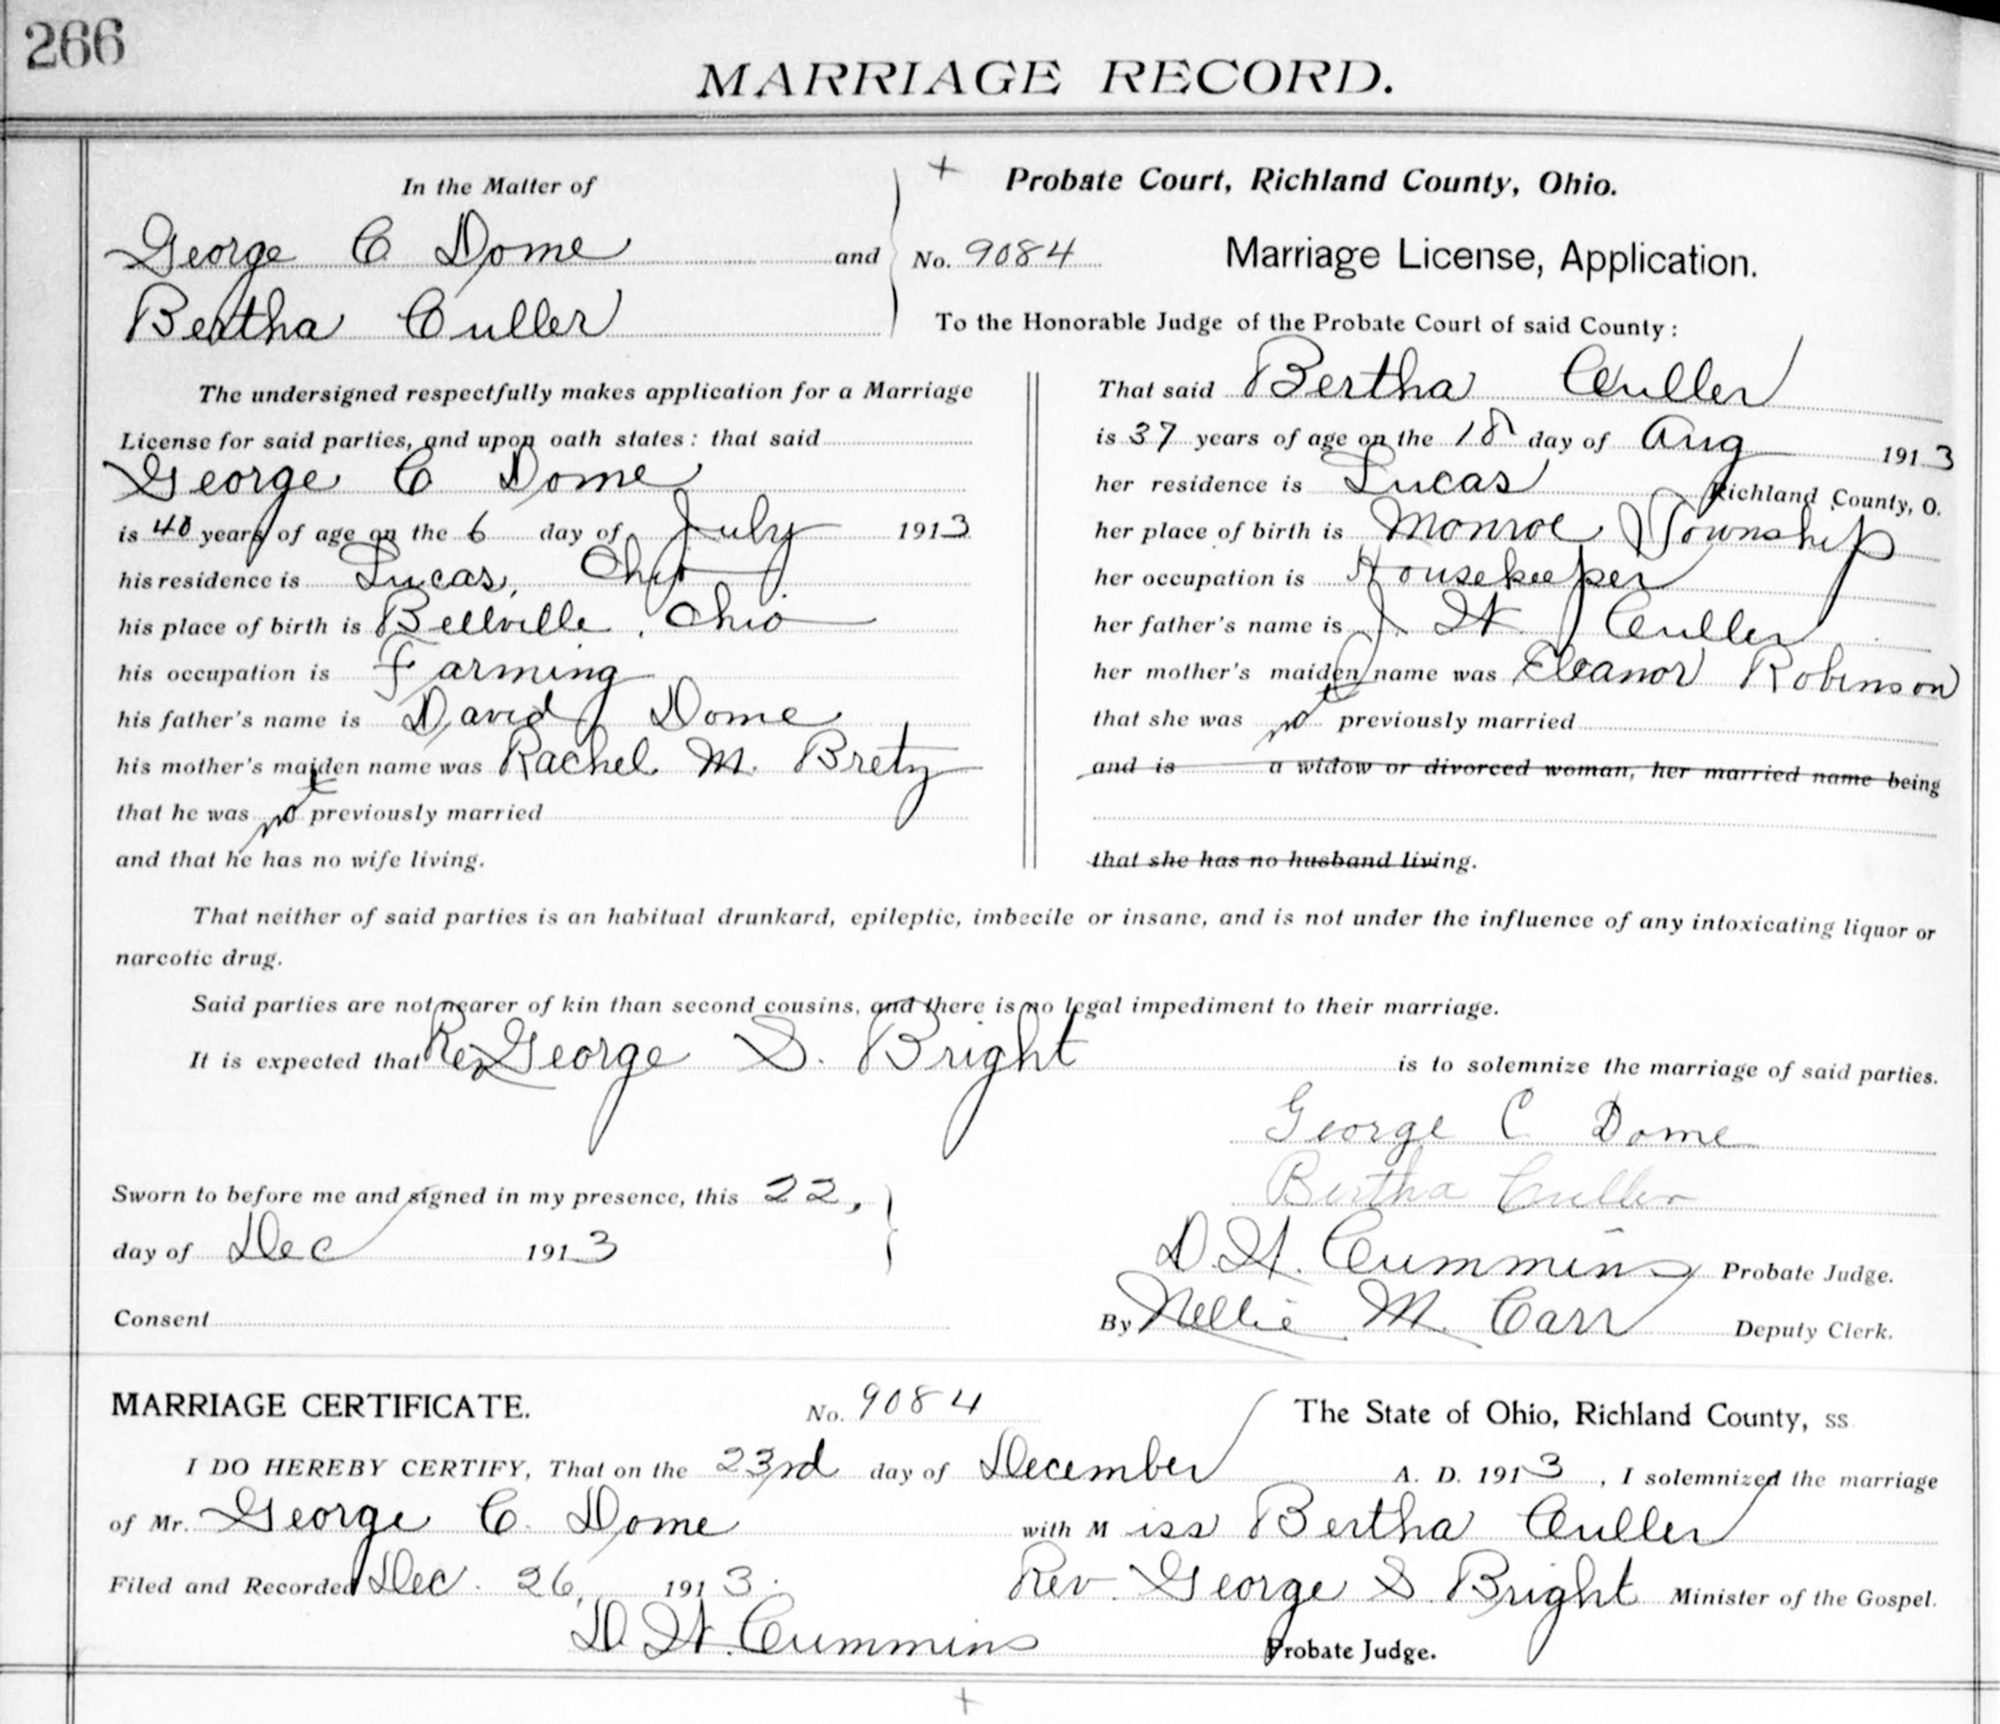 266
MARRIAGE RECORD.
In the Matter of
George C Dome and
Bertha Culler
Probate Court, Richland County, Ohio.
No. 9084 Marriage License, Application.
To the Honorable Judge of the Probate Court of said County:
The undersigned respectfully makes application for a Marriage
License for said parties, and upon oath states: that said
George C Dome
is 40 years of age on the 6 day of July 1913
his residence is Lucas, Ohio
his place of birth is Bellville, Ohio
his occupation is Farming
his father's name is David Dome
his mother's maiden name was Rachel M. Bretz
that he was not previously married
and that he has no wife living.
That said Bertha Culler
is 37 years of age on the 18 day of Aug 1913
her residence is Lucas Richland County, O.
her place of birth is Monroe Township
her occupation is Housekeeper
her father's name is J. W. Culler
her mother's maiden name was Eleanor Robinson
that she was not previously married
and is a widow or divorced woman, her married name being
that she has no husband living.
That neither of said parties is an habitual drunkard, epileptic, imbecile or insane, and is not under the influence of any intoxicating liquor or
narcotic drug.
Said parties are not nearer of kin than second cousins, and there is no legal impediment to their marriage.
It is expected that Rev George S. Bright is to solemnize the marriage of said parties.
George C Dome
Bertha Culler
Sworn to before me and signed in my presence, this 22,
day of Dec 1913
D. W. Cummins Probate Judge.
Consent
By Nellie M. Carr Deputy Clerk.
MARRIAGE CERTIFICATE. No. 9084 The State of Ohio, Richland County, ss
I DO HEREBY CERTIFY, That on the 23rd day of December A. D. 1913, I solemnized the marriage
of Mr. George C. Dome with Miss Bertha Culler
Filed and Recorded Dec. 26, 1913. Rev. George S. Bright Minister of the Gospel.
D. W. Cummins Probate Judge.